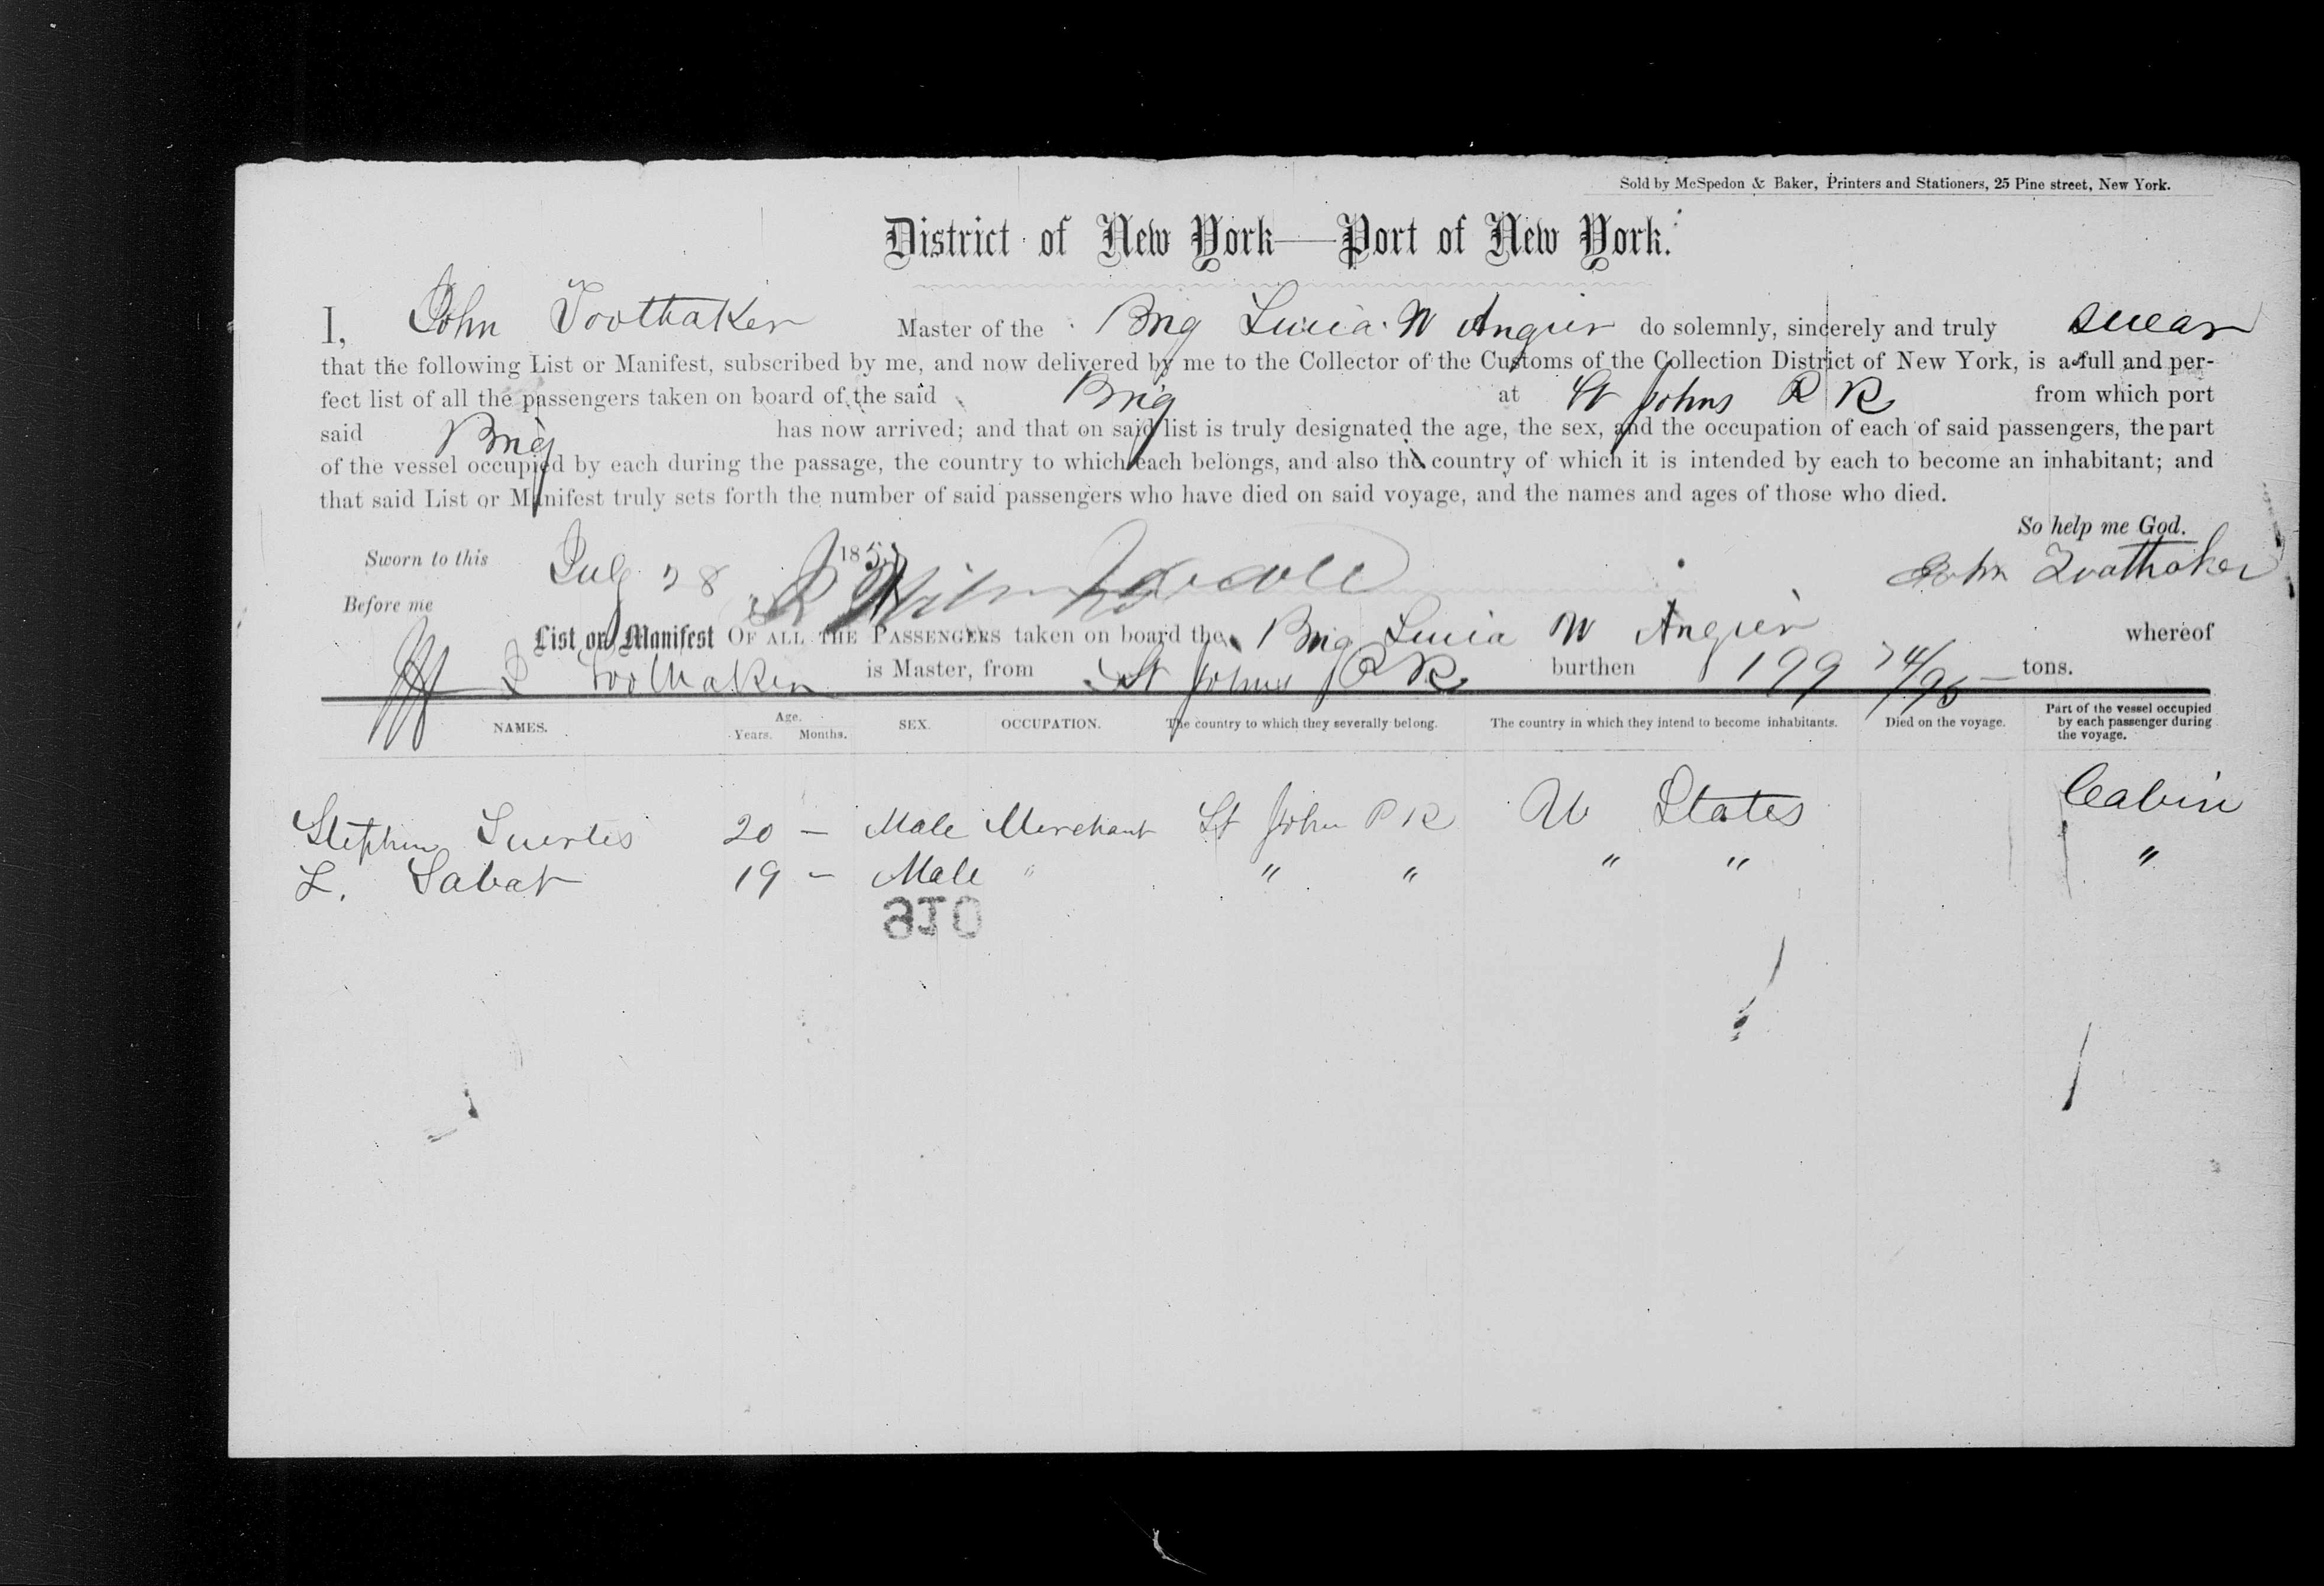 Sold by McSpedon & Baker, Printers and Stationers, 25 Pine street, New York.
District of New York—Port of New York.
I, John Toothaker Master of the Brig Lucia W Angier do solemnly, sincerely and truly swear
that the following List or Manifest, subscribed by me, and now delivered by me to the Collector of the Customs of the Collection District of New York, is a full and per-
fect list of all the passengers taken on board of the said Brig at St Johns P R from which port
said Brig has now arrived; and that on said list is truly designated the age, the sex, and the occupation of each of said passengers, the part
of the vessel occupied by each during the passage, the country to which each belongs, and also the country of which it is intended by each to become an inhabitant; and
that said List or Manifest truly sets forth the number of said passengers who have died on said voyage, and the names and ages of those who died.
So help me God.
Sworn to this July 28 185
John Toothaker
Before me
List or Manifest OF ALL THE PASSENGERS taken on board the Brig Lucia W Angier whereof
Toothaker is Master, from St Johns P R burthen 199 74/95 tons.
NAMES. Age. Years. Months. SEX. OCCUPATION. The country to which they severally belong. The country in which they intend to become inhabitants. Died on the voyage. Part of the vessel occupied by each passenger during the voyage.
Stephen 20 — Male Merchant St John P R U States Cabin
L. Sabat 19 — Male " " " " " "